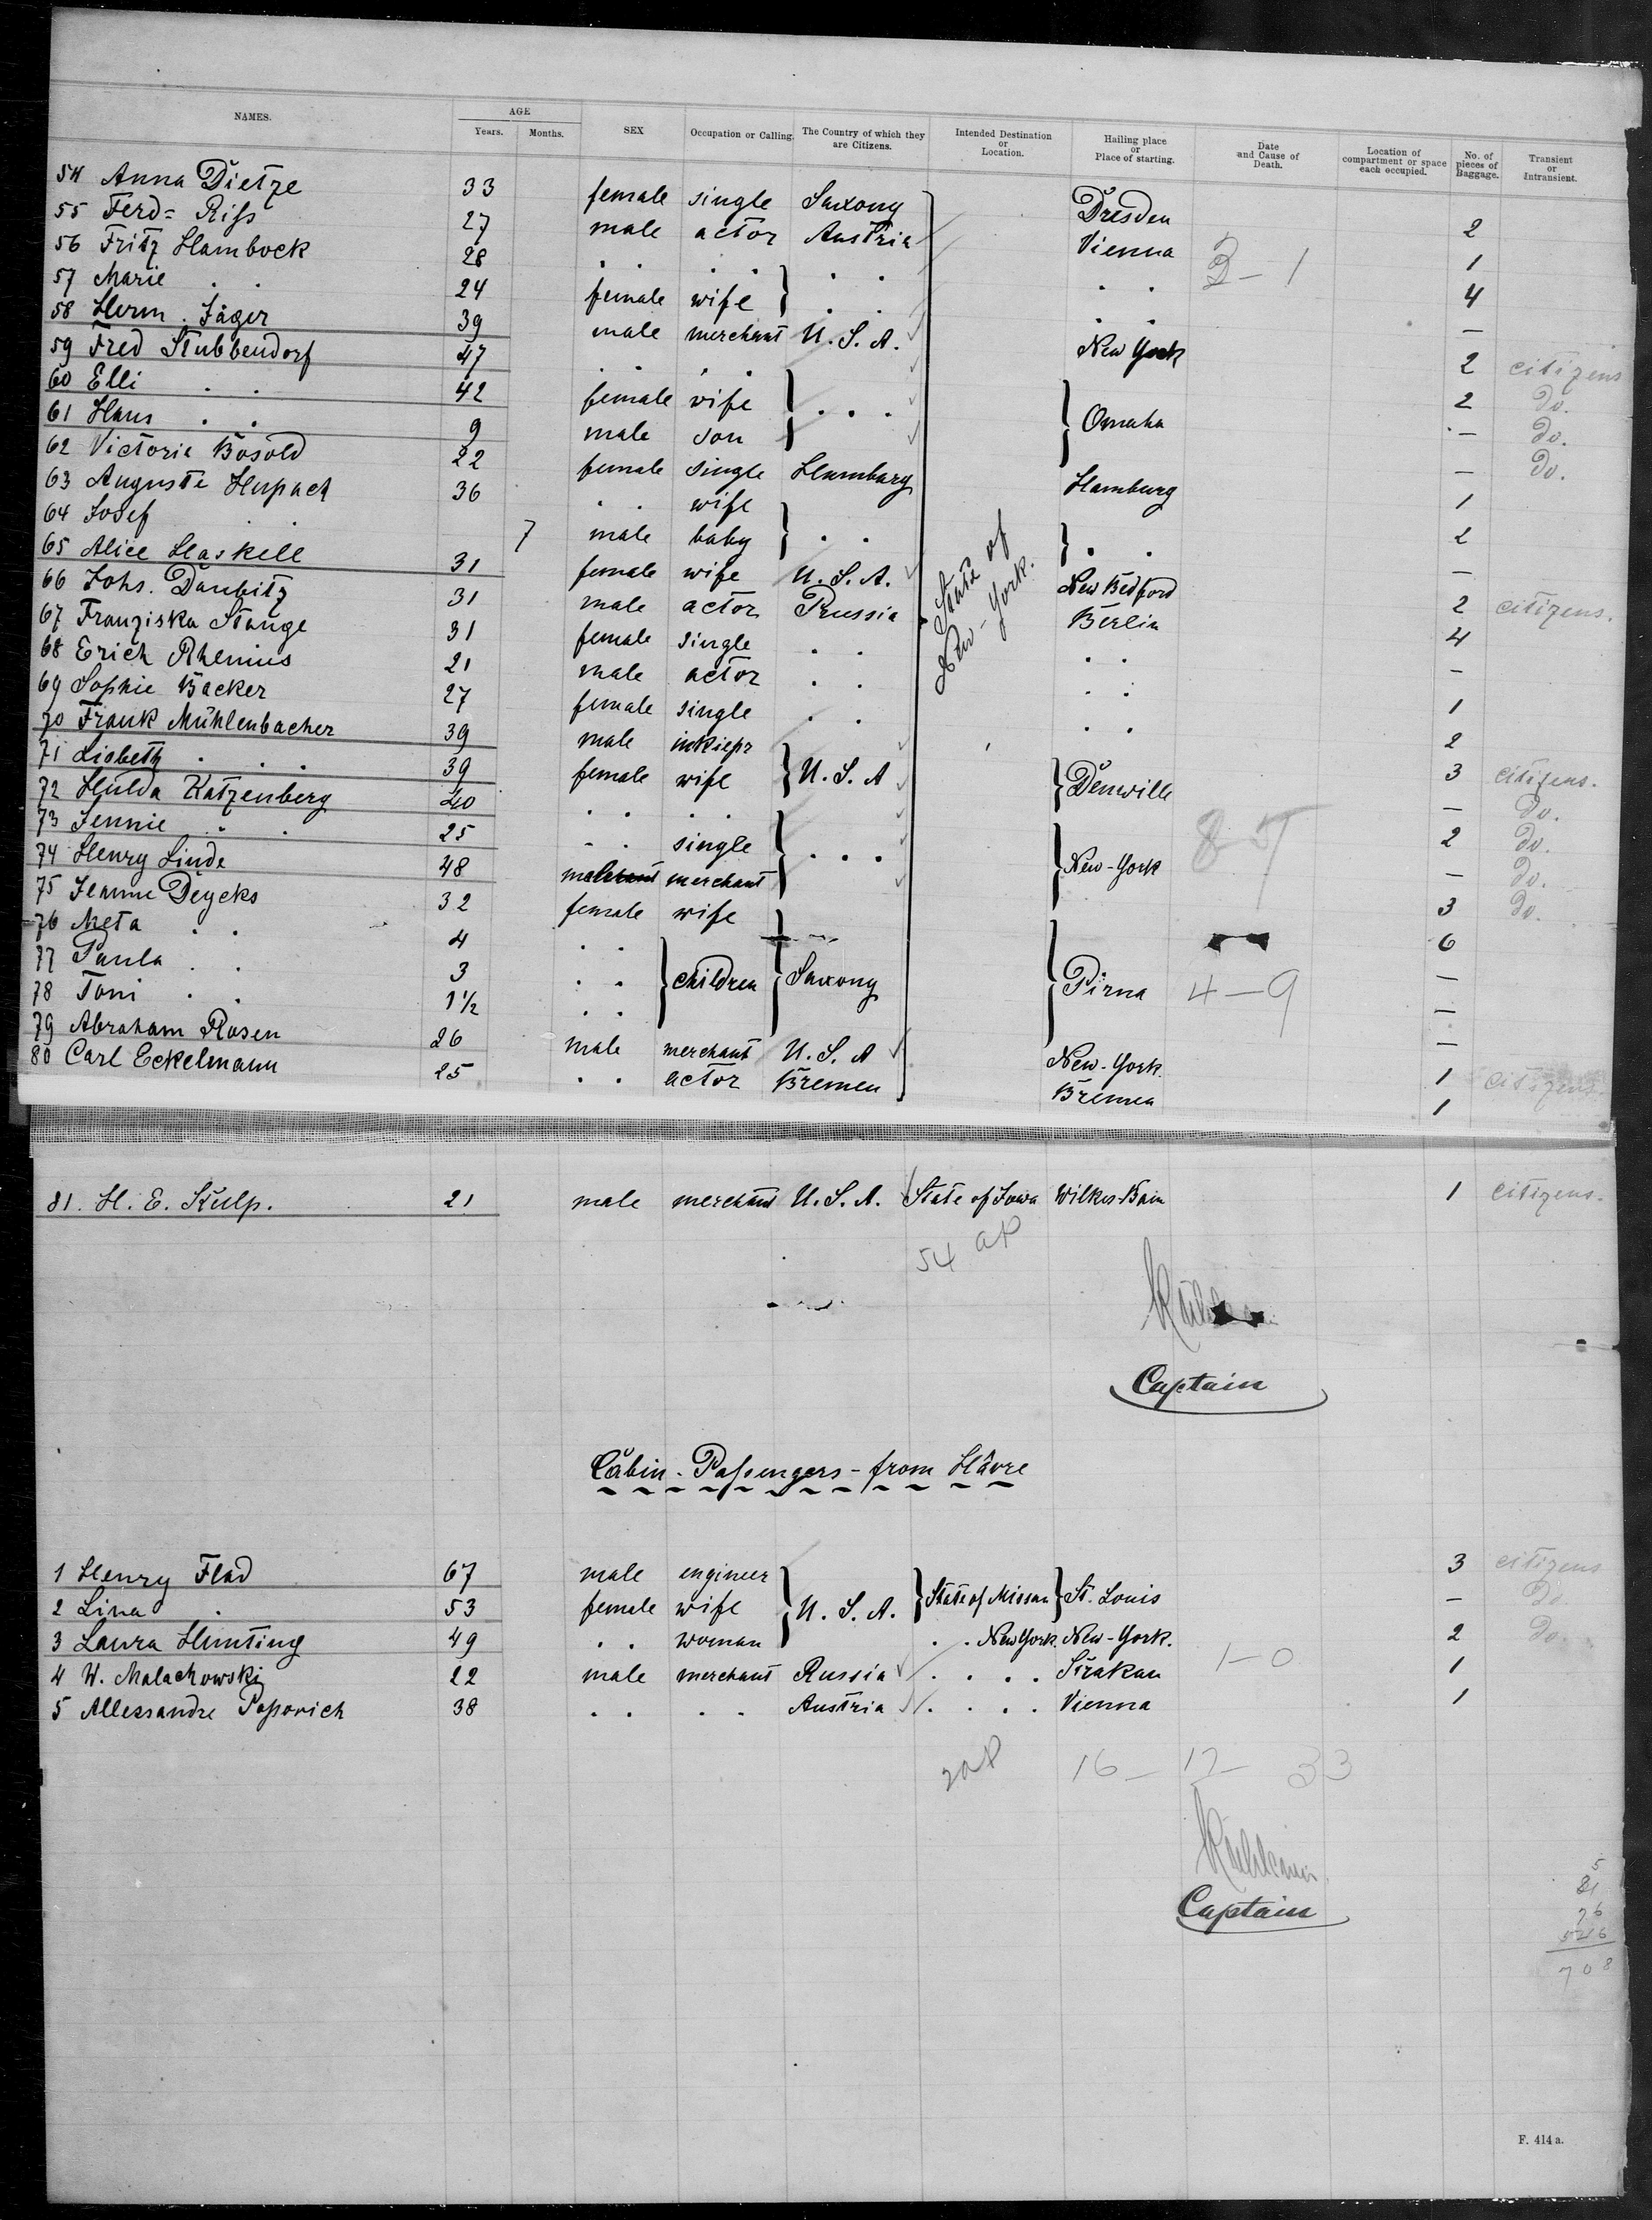 NAMES. AGE SEX Occupation or Calling. The Country of which they are Citizens. Intended Destination or Location. Hailing place or Place of starting. Date and Cause of Death. Location of compartment or space each occupied. No. of pieces of Baggage. Transient or Intransient.
Years. Months.
54 Anna Dietze 33 female single Saxony Dresden 2
55 Ferd= Riss 27 male actor Austria Vienna 1
56 Fritz Hambock 28 . . . . . . . . 4
57 Marie . . 24 female wife . . . . —
58 Herm. Jäger 39 male merchant U.S.A. New York 2 citizens
59 Fred Stubbendorf 47 . . . . 2 do.
60 Elli . . 42 female wife . . . Omaha — do.
61 Hans . . 9 male son — do.
62 Victoria Bosold 22 female single Hamburg Hamburg 1
63 Auguste Hupach 36 . . wife 2
64 Josef . . 7 male baby . . . . —
State of New-York.
65 Alice Haskell 31 female wife U.S.A. New Bedford 2 citizens.
66 Johs. Daubitz 31 male actor Prussia Berlin 4
67 Franziska Stange 31 female single . . . . —
68 Erich Rhenius 21 male actor . . . . 1
69 Sophie Backer 27 female single . . . . 2
70 Frank Mühlenbacher 39 male inkiepr U.S.A 3 citizens.
71 Lisbeth . . . 39 female wife Denwille — do.
72 Hulda Katzenberg 40 . . . . 2 do.
73 Jennie . . 25 . . single . . . New-York — do.
74 Henry Linde 48 male merchant 3 do.
75 Jeanne Deycks 32 female wife 6
76 Meta . . 4 . . —
77 Paula . . 3 . . children Saxony Pirna 4-9 —
78 Toni . . 1½ . . —
79 Abraham Rosen 26 male merchant U.S.A New-York 1 citizens
80 Carl Eckelmann 25 . . actor Bremen Bremen 1
81. H. E. Kulp. 21 male merchant U.S.A. State of Iowa 1 citizens.
54 ap
Captain
Cabin-Passengers-from Hâvre
1 Henry Flad 67 male engineer 3 citizens
2 Lina . 53 female wife U.S.A. St. Louis — do.
3 Laura Hunting 49 . . woman . . New York New-York. 2 do.
4 W. Malachowski 22 male merchant Russia . . . . 1-0 1
5 Allessandre Popovich 38 . . . . Austria . . . . Vienna 1
2ap 16 - 17 - 33
Captain
5
81
76
546
708
F. 414 a.